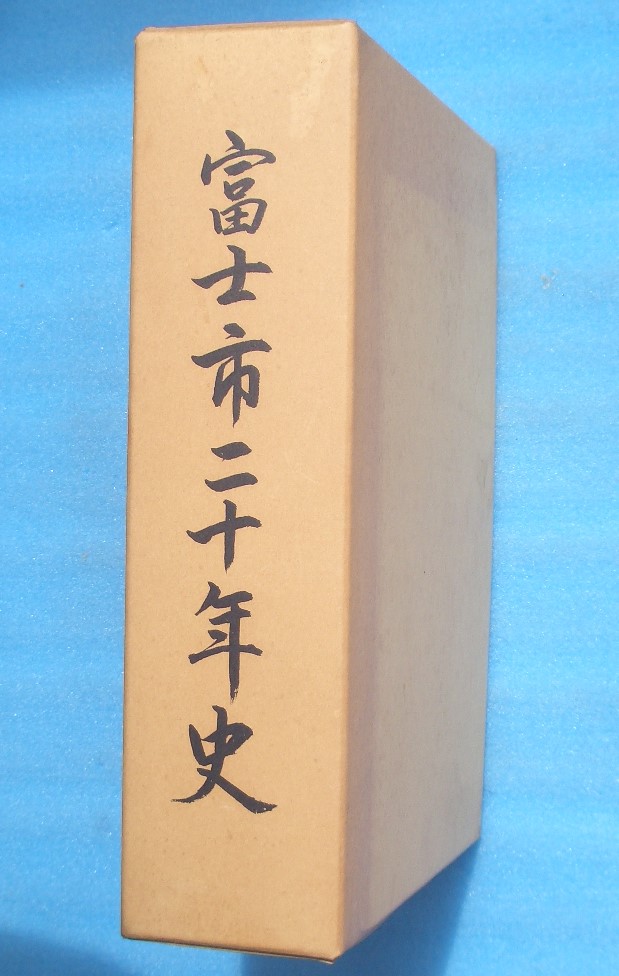 富士市二十年史